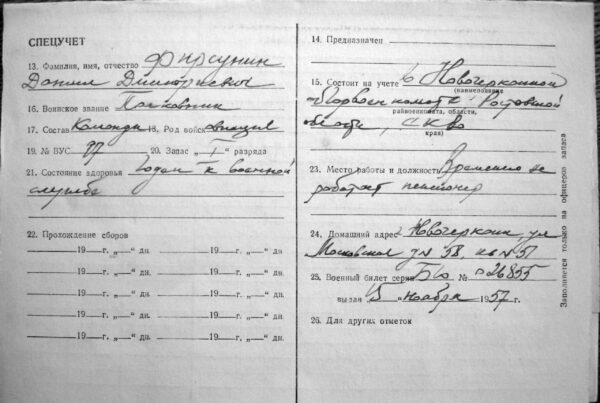 СПЕЦУЧЕТ
13. Фамилия, имя, отчество Фирсунин
Даниил Дмитриевич
16. Воинское звание Полковник
17. Состав Команди 18. Род войск авиация
19. № ВУС 97 20. Запас „I“ разряда
21. Состояние здоровья Годен к военной
службе
22. Прохождение сборов
19 г. „ “ дн. 19 г. „ “ дн.
19 г. „ “ дн. 19 г. „ “ дн.
19 г. „ “ дн. 19 г. „ “ дн.
19 г. „ “ дн. 19 г. „ “ дн.
19 г. „ “ дн. 19 г. „ “ дн.
14. Предназначен
15. Состоит на учете в
(наименование
Горвоенкомате Ростовской
райвоенкомата, области,
области, СКВО
края)
23. Место работы и должность Временно не
работает пенсионер
24. Домашний адрес г. Новочеркасск, ул
Московская 58, кв № 51
25. Военный билет серия № 026855
выдан 5 ноября 1957 г.
26. Для других отметок
Заполняется только на офицеров запаса